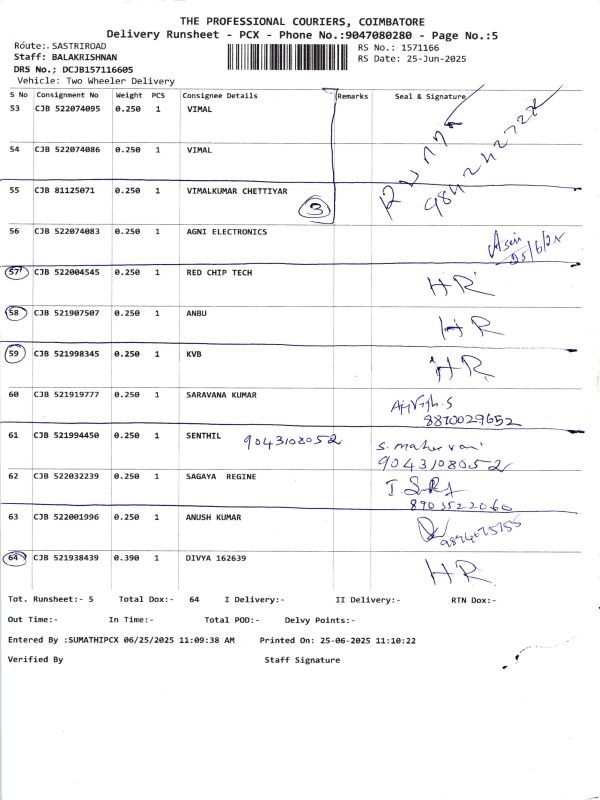 THE PROFESSIONAL COURIERS, COIMBATORE
Delivery Runsheet - PCX - Phone No.:9047080280 - Page No.:5
Route:.SASTRIROAD
RS No.: 1571166
Staff: BALAKRISHNAN
RS Date: 25-Jun-2025
DRS No.; DCJB157116605
Vehicle: Two Wheeler Delivery
S No Consignment No Weight PCS Consignee Details Remarks Seal & Signature
53 CJB 522074095 0.250 1 VIMAL
54 CJB 522074086 0.250 1 VIMAL
55 CJB 81125071 0.250 1 VIMALKUMAR CHETTIYAR
3
56 CJB 522074083 0.250 1 AGNI ELECTRONICS
25/6/25
57 CJB 522004545 0.250 1 RED CHIP TECH HR
58 CJB 521907507 0.250 1 ANBU HR
59 CJB 521998345 0.250 1 KVB HR
60 CJB 521919777 0.250 1 SARAVANA KUMAR
8870029652
61 CJB 521994450 0.250 1 SENTHIL 9043108052
9043108052
62 CJB 522032239 0.250 1 SAGAYA REGINE
8903522060
63 CJB 522001996 0.250 1 ANUSH KUMAR
64 CJB 521938439 0.390 1 DIVYA 162639 HR
Tot. Runsheet:- 5 Total Dox:- 64 I Delivery:- II Delivery:- RTN Dox:-
Out Time:- In Time:- Total POD:- Delvy Points:-
Entered By :SUMATHIPCX 06/25/2025 11:09:38 AM Printed On: 25-06-2025 11:10:22
Verified By Staff Signature